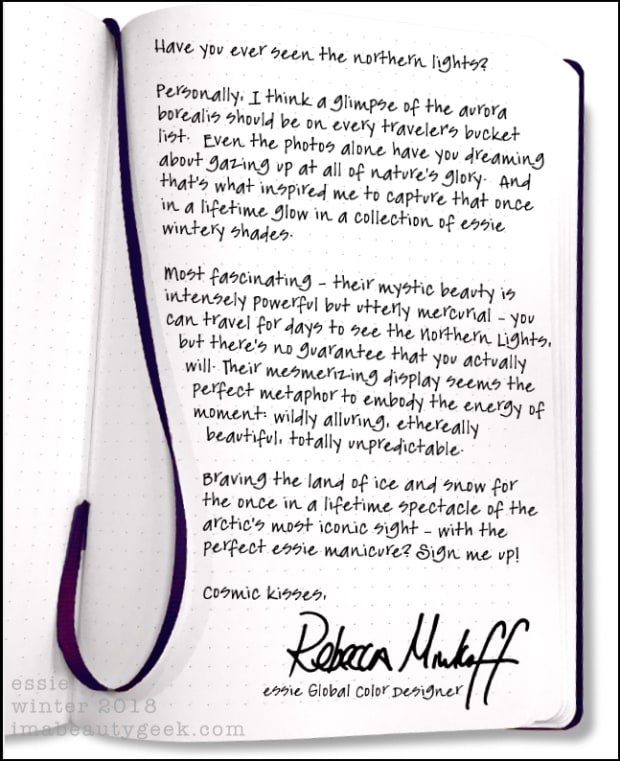 Have you ever seen the northern lights?
Personally, I think a glimpse of the aurora
borealis should be on every travelers bucket
list. Even the photos alone have you dreaming
about gazing up at all of nature's glory. And
that's what inspired me to capture that once
in a lifetime glow in a collection of essie
wintery shades.
Most fascinating - their mystic beauty is
intensely powerful but utterly mercurial - you
can travel for days to see the Northern Lights,
but there's no guarantee that you actually
will. Their mesmerizing display seems the
perfect metaphor to embody the energy of
moment: wildly alluring, ethereally
beautiful, totally unpredictable.
Braving the land of ice and snow for
the once in a lifetime spectacle of the
arctic's most iconic sight - with the
perfect essie manicure? Sign me up!
Cosmic kisses,
Rebecca Minkoff
essie Global Color Designer
essie
winter 2018
imabeautygeek.com